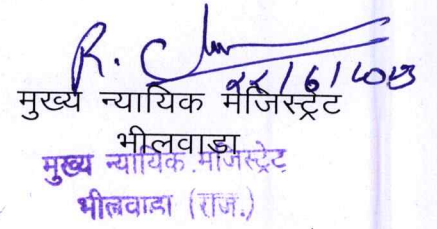 R. C
22/6/2023
मुख्य न्यायिक मजिस्ट्रेट
भीलवाड़ा
मुख्य न्यायिक मजिस्ट्रेट
भीलवाडा (राज.)